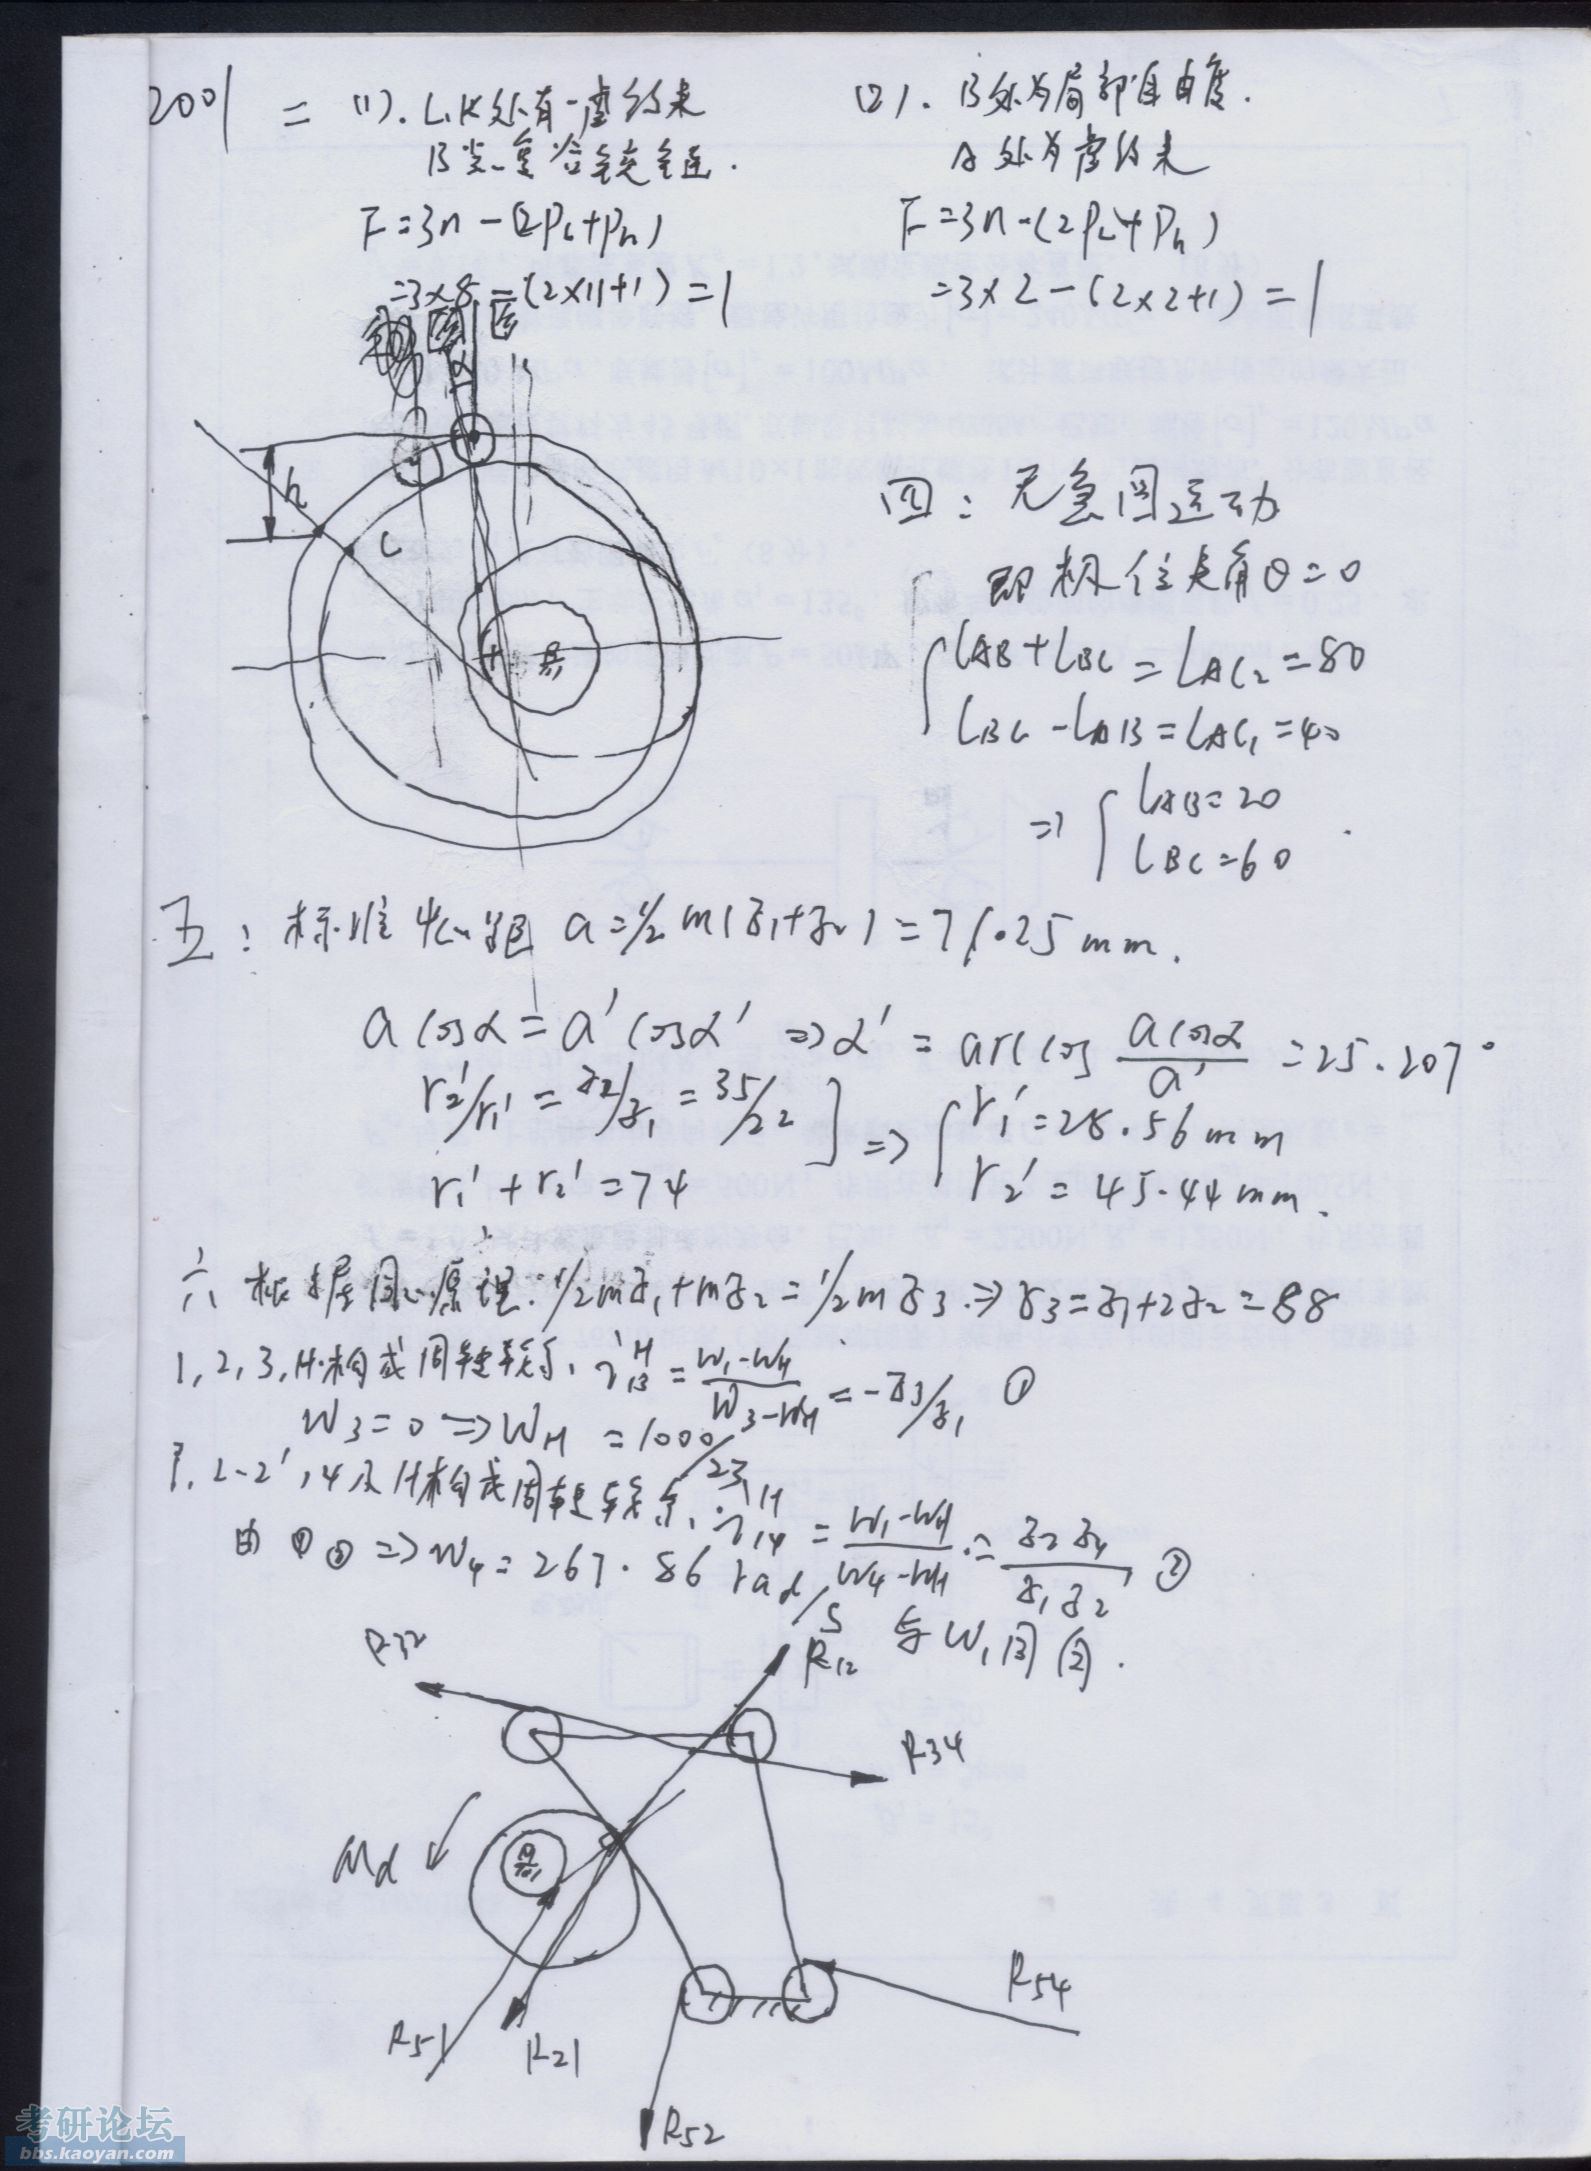 2001 二 (1). L.K处有一虚约束
B类复合铰链.
F=3n-(2PL+Ph)
=3×8-(2×11+1)=1
(2). B处为局部自由度.
A处为虚约束
F=3n-(2PL+Ph)
=3×2-(2×2+1)=1
h
C
四: 无急回运动
即极位夹角θ=0
LAB+LBC=LAC2=80
LBC-LAB=LAC1=40
=> LAB=20
LBC=60
五: 标准中心距 a=1/2 m(z1+z2)=71.25mm.
a cosα=a'cosα' => α'=arccos a cosα/a' =25.207°
r2'/r1'=z2/z1=35/22
r1'+r2'=74
=> r1'=28.56mm
r2'=45.44mm.
六 根据同心原理: 1/2mz1+mz2=1/2mz3 => z3=z1+2z2=88
1,2,3,H构成周转轮系, i13^H=(W1-WH)/(W3-WH)=-z3/z1 ①
W3=0 => WH=1000/23
1,2-2',4及H构成周转轮系, i14^H=(W1-WH)/(W4-WH)=z2z4/z1z2' ②
由①② => W4=267.86rad/s 与W1同向.
R32
R12
R34
Md
R51
R21
R54
R52
考研论坛
bbs.kaoyan.com